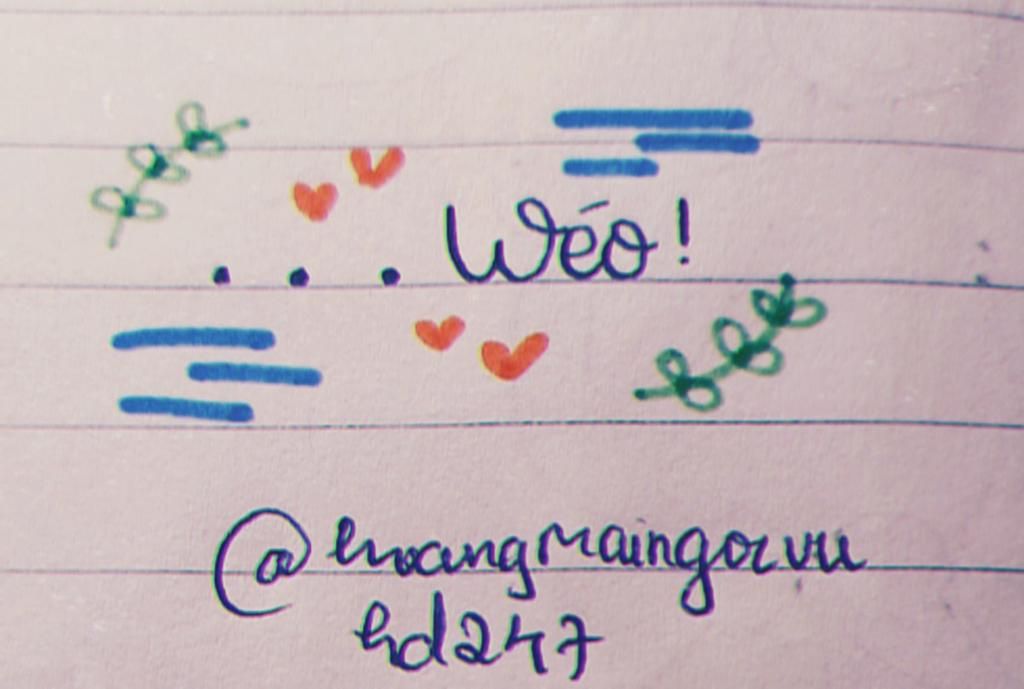 ... Wéo!
@hoangmaingocvu
hd247